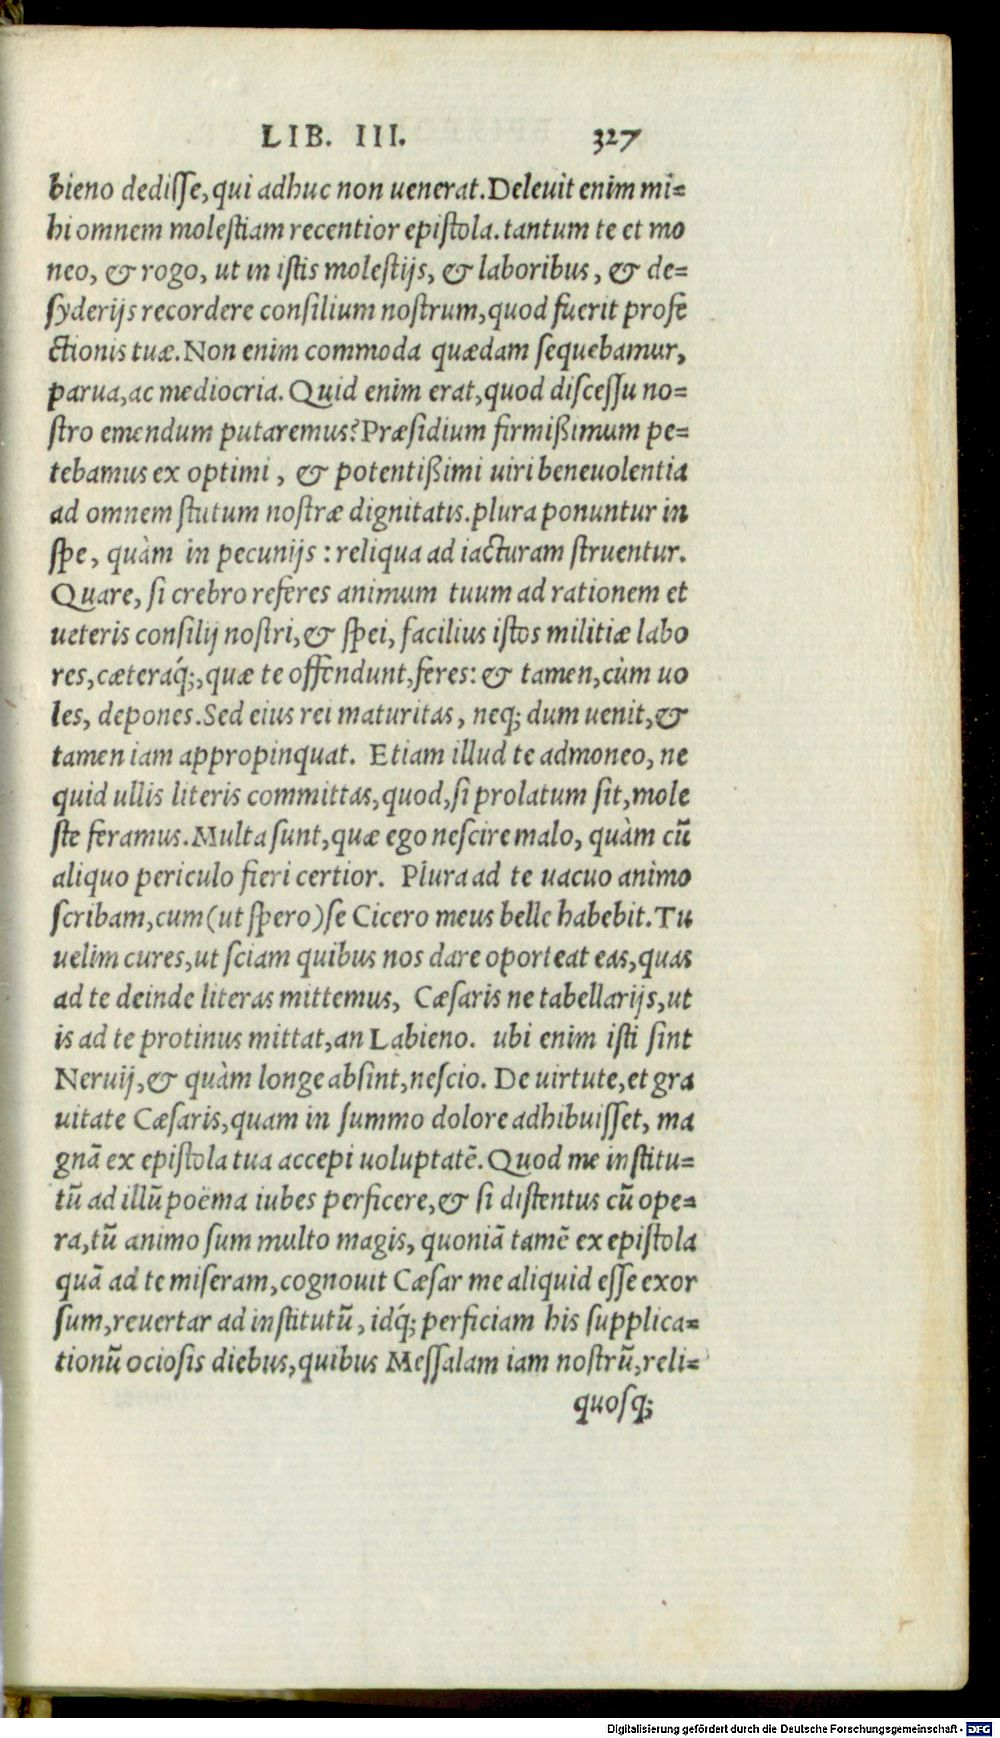 LIB. III. 327
bieno dedisse, qui adhuc non uenerat. Deleuit enim mi=
hi omnem molestiam recentior epistola. tantum te et mo
neo, & rogo, ut in istis molestijs, & laboribus, & de=
syderijs recordere consilium nostrum, quod fuerit profe
ctionis tuæ. Non enim commoda quædam sequebamur,
parua, ac mediocria. Quid enim erat, quod discessu no=
stro emendum putaremus? Præsidium firmißimum pe=
tebamus ex optimi, & potentißimi uiri beneuolentia
ad omnem stutum nostræ dignitatis. plura ponuntur in
spe, quàm in pecunijs : reliqua ad iacturam struentur.
Quare, si crebro referes animum tuum ad rationem et
ueteris consilij nostri, & spei, facilius istos militiæ labo
res, cæteraq́;, quæ te offendunt, feres: & tamen, cùm uo
les, depones. Sed eius rei maturitas, neq; dum uenit, &
tamen iam appropinquat. Etiam illud te admoneo, ne
quid ullis literis committas, quod, si prolatum sit, mole
ste feramus. Multa sunt, quæ ego nescire malo, quàm cū
aliquo periculo fieri certior. Plura ad te uacuo animo
scribam, cum (ut spero) se Cicero meus belle habebit. Tu
uelim cures, ut sciam quibus nos dare oporteat eas, quas
ad te deinde literas mittemus, Cæsaris ne tabellarijs, ut
is ad te protinus mittat, an Labieno. ubi enim isti sint
Neruij, & quàm longe absint, nescio. De uirtute, et gra
uitate Cæsaris, quam in summo dolore adhibuisset, ma
gnā ex epistola tua accepi uoluptatē. Quod me institu=
tū ad illū poëma iubes perficere, & si distentus cū ope=
ra, tū animo sum multo magis, quoniā tamē ex epistola
quā ad te miseram, cognouit Cæsar me aliquid esse exor
sum, reuertar ad institutū, idq́; perficiam his supplica=
tionū ociosis diebus, quibus Messalam iam nostrū, reli=
quosq;
Digitalisierung gefördert durch die Deutsche Forschungsgemeinschaft - DFG